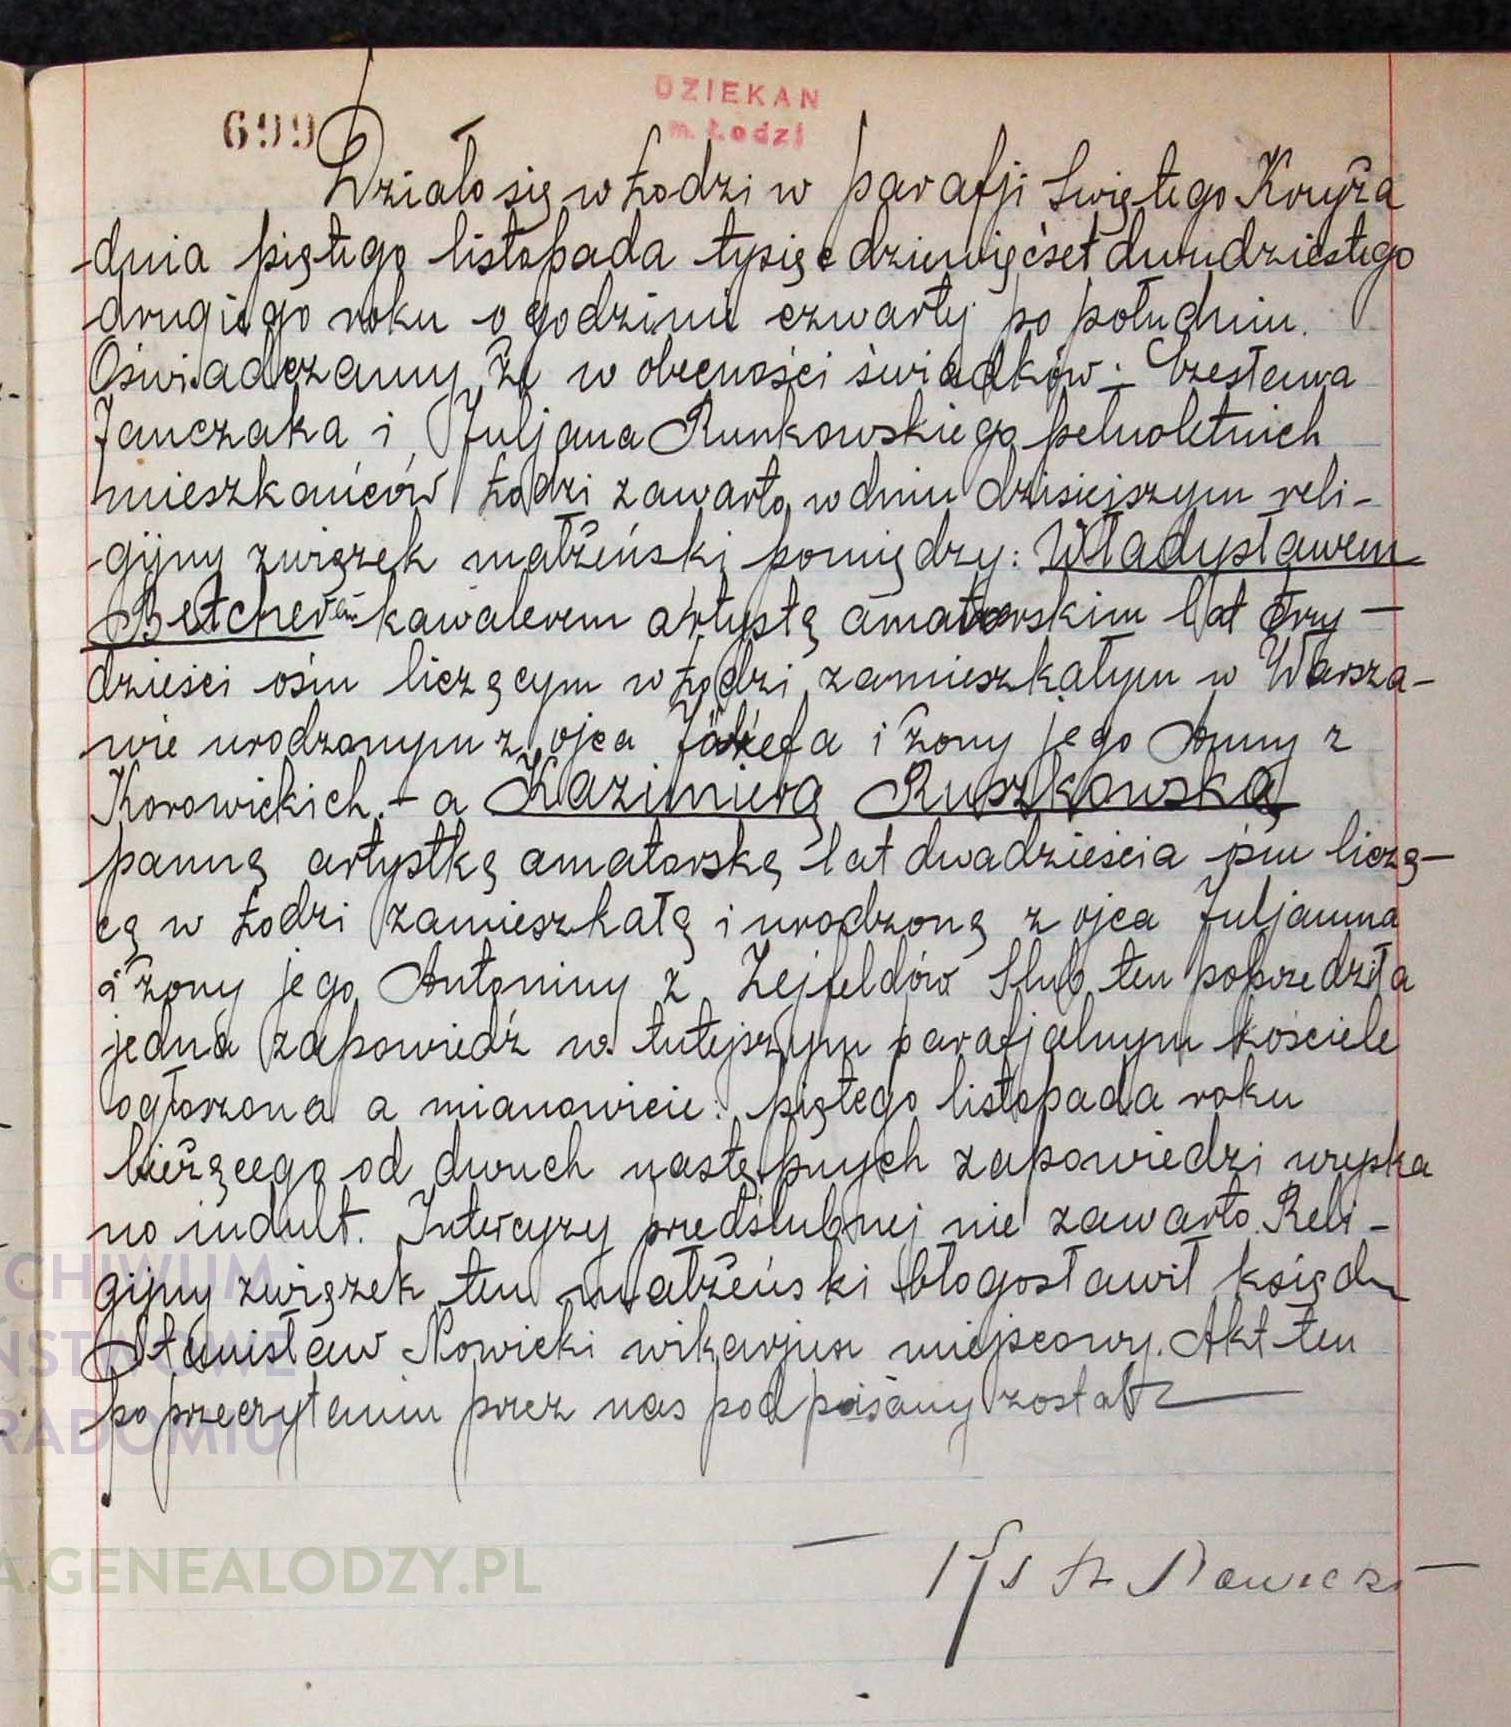 DZIEKAN
m. Łodzi
699
Działo się w Łodzi w parafji Świętego Krzyża
dnia piątego listopada tysiąc dziewięćset dwudziestego
drugiego roku o godzinie czwartej po południu.
Oświadczamy, że w obecności świadków: Czesława
Janczaka i Juljana Runkowskiego pełnoletnich
mieszkańców Łodzi zawarto w dniu dzisiejszym reli-
-gijny związek małżeński pomiędzy: Władysławem
Betcherem kawalerem artystą amatorskim lat trzy-
dzieści ośm liczącym w Łodzi zamieszkałym w Warsza-
wie urodzonym z ojca Józefa i żony jego Anny z
Korowickich. - a Kazimierą Ruszkowską
panną artystką amatorską lat dwadzieścia ośm liczą-
cą w Łodzi zamieszkałą i urodzoną z ojca Juljanna
i żony jego Antoniny z Zejfeldów Ślub ten poprzedziła
jedna zapowiedź w tutejszym parafjalnym kościele
ogłoszona a mianowicie: piątego listopada roku
bieżącego od dwuch następnych zapowiedzi uzyska
no indult. Intercyzy przedślubnej nie zawarto. Reli-
gijny związek ten małżeński błogosławił ksiądz
Stanisław Nowicki wikarjusz miejscowy. Akt ten
po przeczytaniu przez nas podpisany został
Ks St Nowicki
ARCHIWUM
PAŃSTWOWE
RADOMIU
A.GENEALODZY.PL